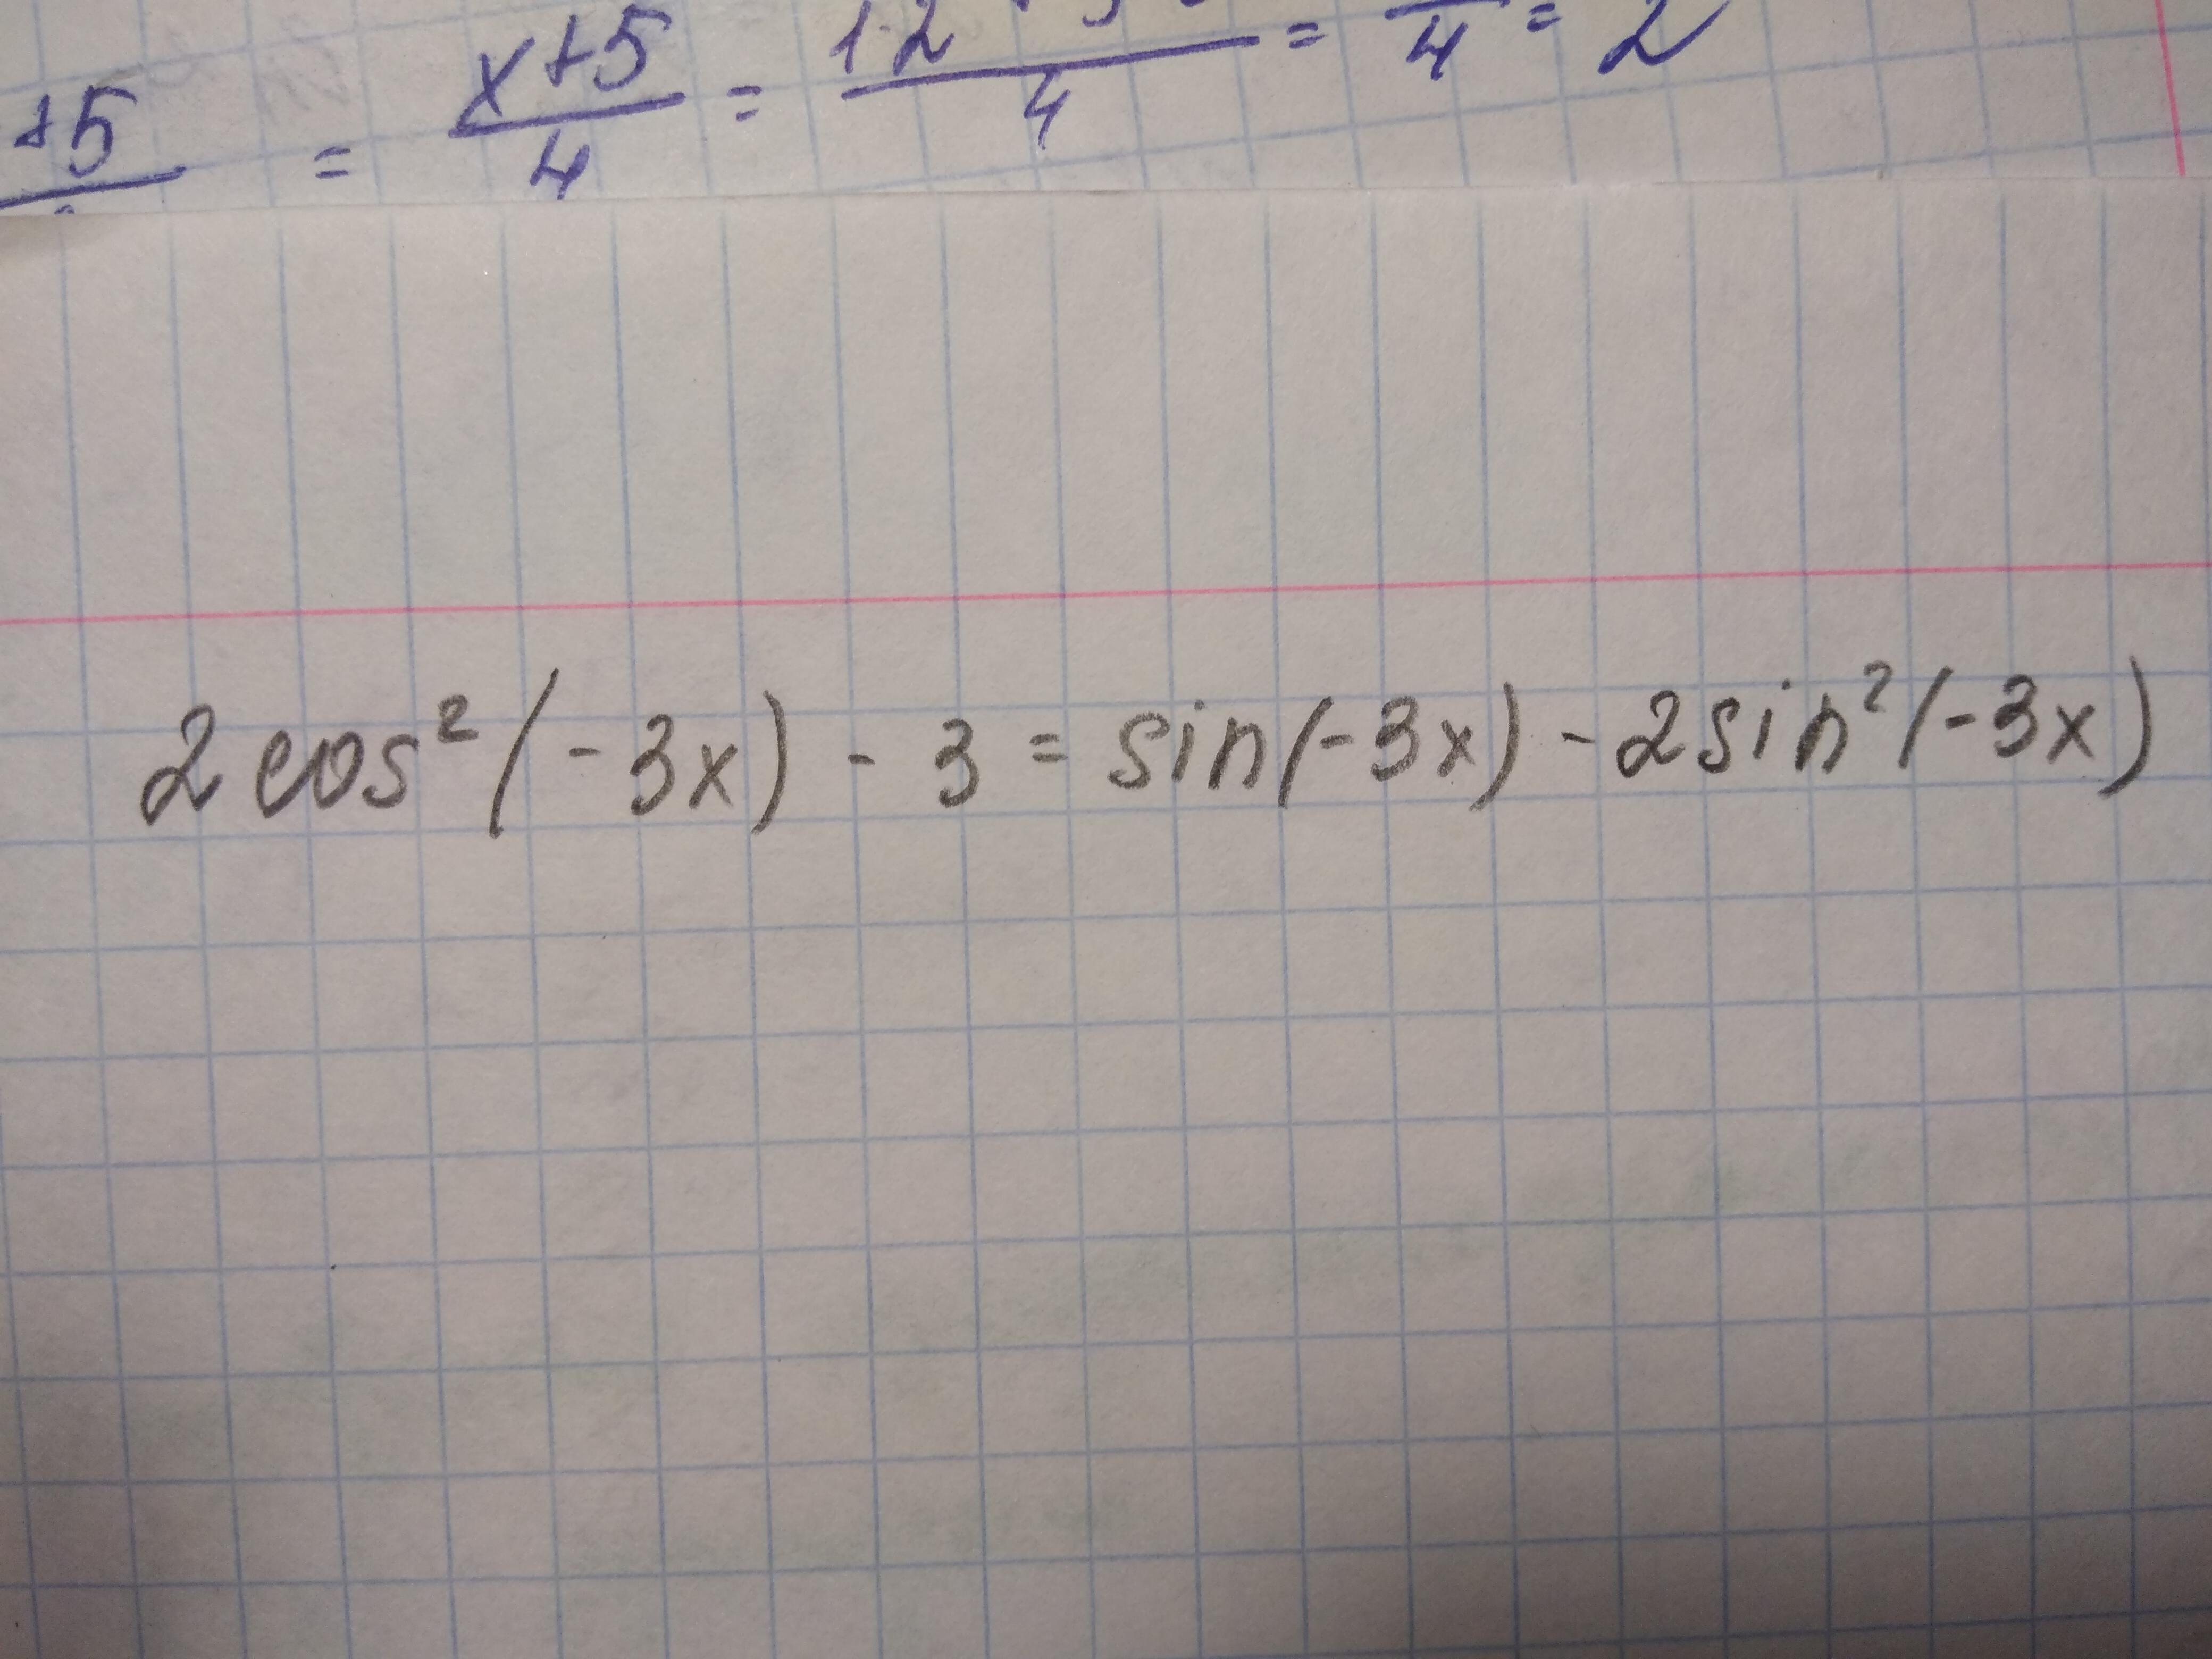 +5 = x+5/4 = 12 / 4 = /4 = 2
2cos²(-3x) - 3 = sin(-3x) - 2sin²(-3x)